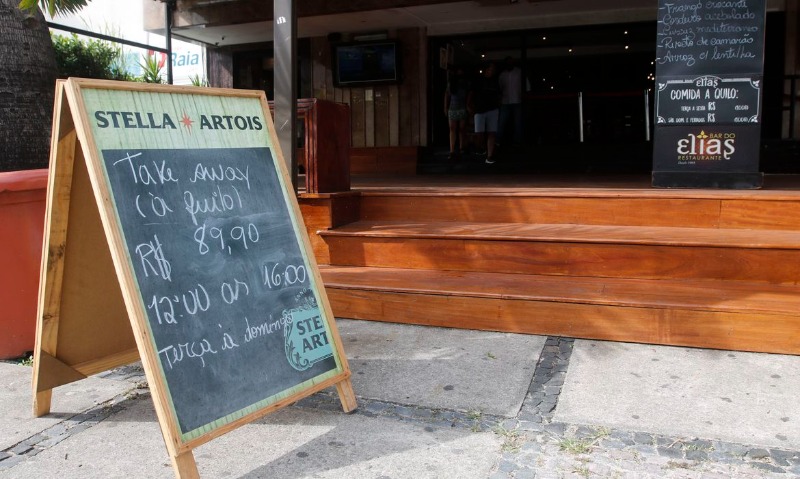 STELLA ARTOIS
Take away
(à quilo)
R$ 89,90
12:00 as 16:00
Terça à domingo
STE
ART
Raia
Frango crocante
Risoto de camarão
Arroz c/ lentilha
elias
COMIDA A QUILO:
TERÇA A SEXTA R$
SÁB. DOM. E FERIADOS R$
BAR DO
elias
RESTAURANTE